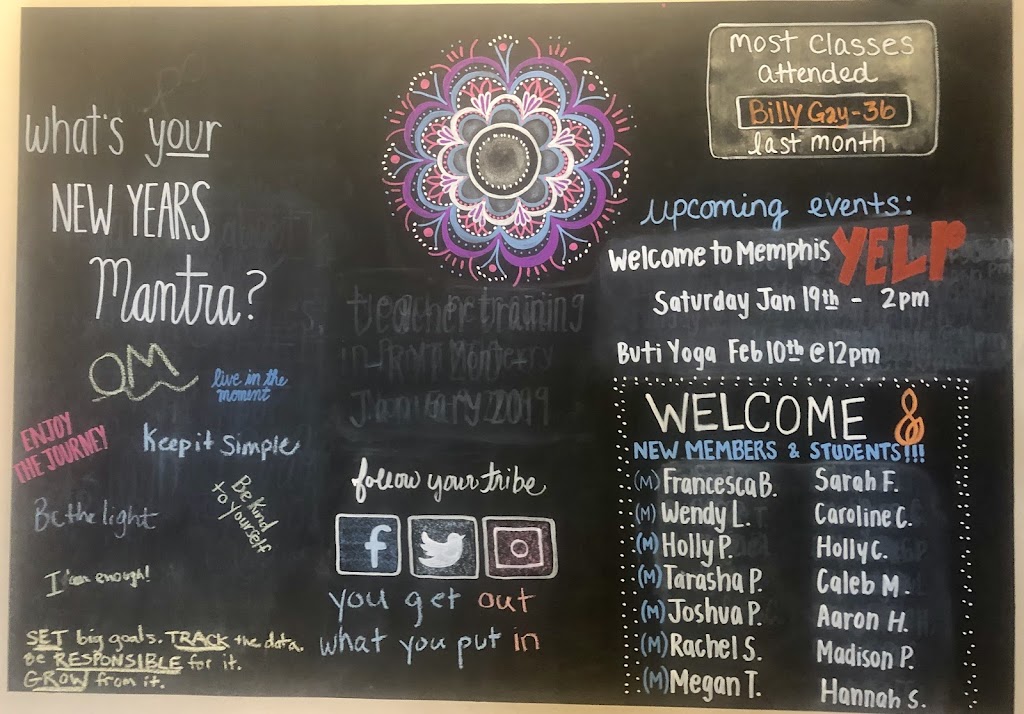 What's your
NEW YEARS
Mantra?
OM
live in the
moment
ENJOY
THE JOURNEY
Keep it simple
Be the light
Be kind
to yourself
I am enough!
SET big goals. TRACK the data.
be RESPONSIBLE for it.
GROW from it.
teacher training
January 2019
follow your tribe
f
you get out
what you put in
most classes
attended
Billy Gay-36
last month
upcoming events:
Welcome to Memphis YELP
Saturday Jan 19th - 2pm
Buti Yoga Feb 10th @ 12pm
WELCOME
NEW MEMBERS & STUDENTS!!!
(M) Francesca B. Sarah F.
(M) Wendy L. Caroline C.
(M) Holly P. Holly C.
(M) Tarasha P. Caleb M.
(M) Joshua P. Aaron H.
(M) Rachel S. Madison P.
(M) Megan T. Hannah S.